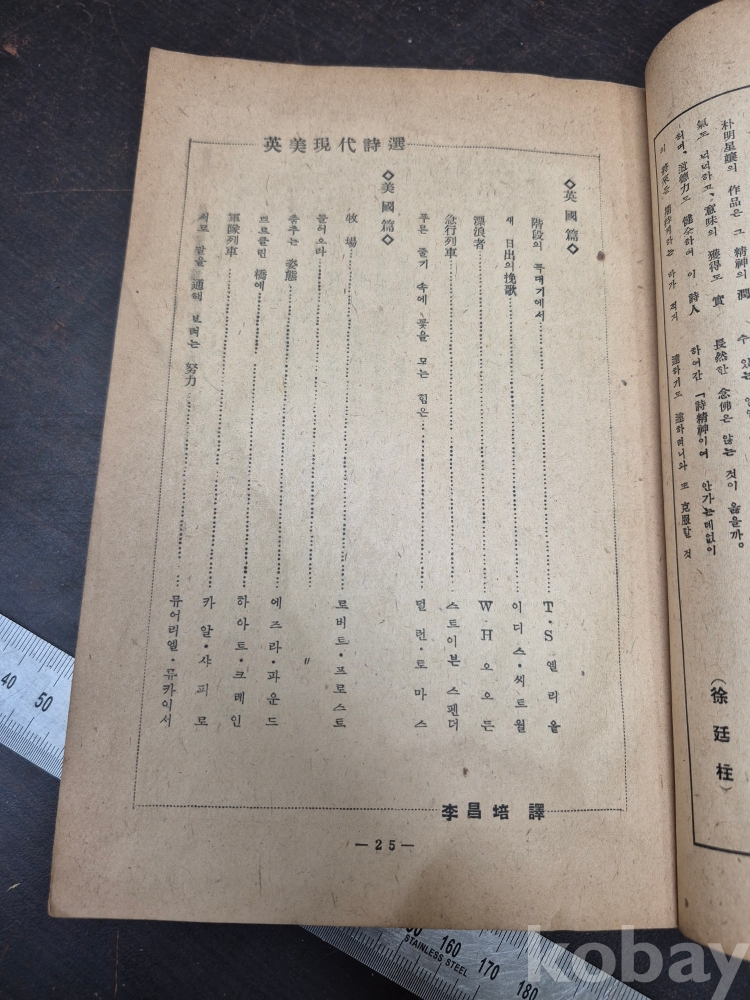 朴明星讓의 作品은 그 精神의 潤
氣도 넉넉하고, 意味의 獲得도 實
健全하여 이 詩人
수 있는
長然한 念佛은 않는 것이 옳을까。
하여간 「詩精神이여 안가는데없이
達하기도 達하려니와 또 克服할 것
(徐廷柱)
英美現代詩選
◇英國篇◇
階段의 꼭대기에서 T・S 엘리올
새 日出의 挽歌 이디스・씻트웰
漂浪者 W H 오오든
急行列車 스트이븐 스펜더
푸른 줄기 속에 꽃을 모는 힘은 딜런・토마스
◇美國篇◇
牧場 로버트・프로스트
불어오라 〃
춤추는 姿態 에즈라・파운드
브르클린 橋에 하아트・크레인
軍隊列車 카알・샤피로
서로 말을 通해 보려는 努力 뮤어리엘・류카이서
李昌培 譯
—25—
40 50
150 160 170 180
STAINLESS STEEL
kobay